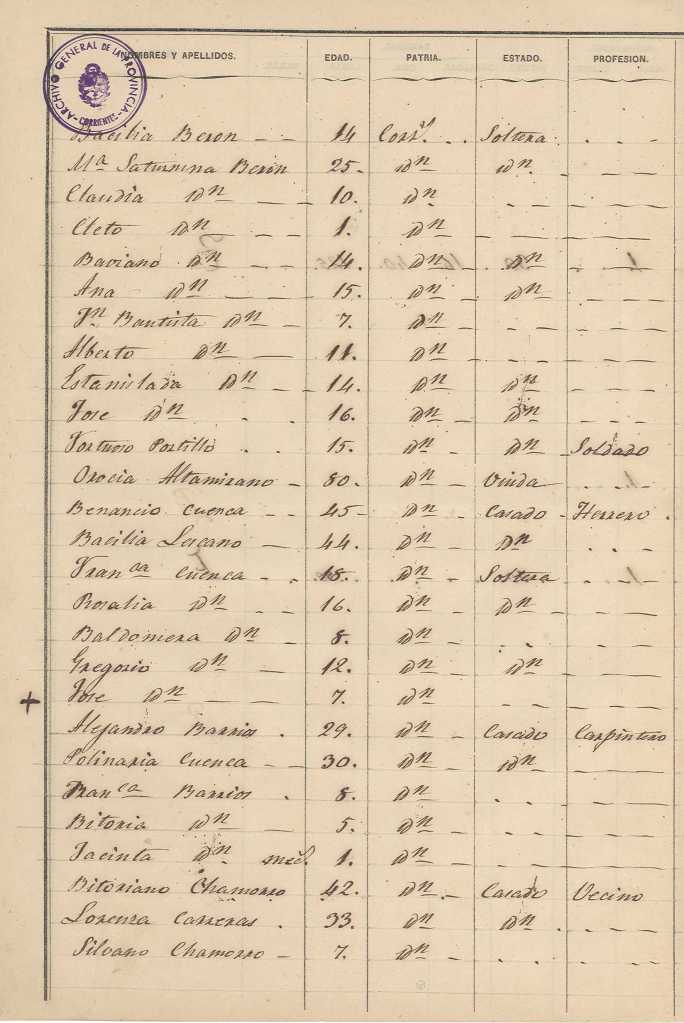 NOMBRES Y APELLIDOS. EDAD. PATRIA. ESTADO. PROFESION.
ARCHIVO GENERAL DE LA PROVINCIA - CORRIENTES -
Bacilia Beron 14 Corr.s Soltera
Ma Saturnina Beron 25. Dn Dn
Claudia Dn 10. Dn
Cleto Dn 1. Dn
Baviano Dn 14. Dn Dn
Ana Dn 15. Dn Dn
Jn Bautista Dn 7. Dn
Alberto Dn 11. Dn
Estanislada Dn 14. Dn Dn
Jose Dn 16. Dn Dn
Fortuoso Portillo 15. Dn Dn Soldado
Orocia Altamirano 80. Dn Viuda
Benancio Cuenca 45 Dn Casado Herrero
Bacilia Lescano 44. Dn Dn
Franca Cuenca 18. Dn Soltera
Rosalia Dn 16. Dn Dn
Baldomera Dn 8. Dn
Gregorio Dn 12. Dn Dn
+ Jose Dn 7. Dn
Alejandro Barrios 29. Dn Casado Carpintero
Polinaria Cuenca 30. Dn Dn
Franca Barrios 8. Dn
Bitoria Dn 5. Dn
Jacinta Dn 1. Dn
Bitoriano Chamorro 42. Dn Casado Vecino
Lorenza Carreras 33. Dn Dn
Silvano Chamorro 7. Dn